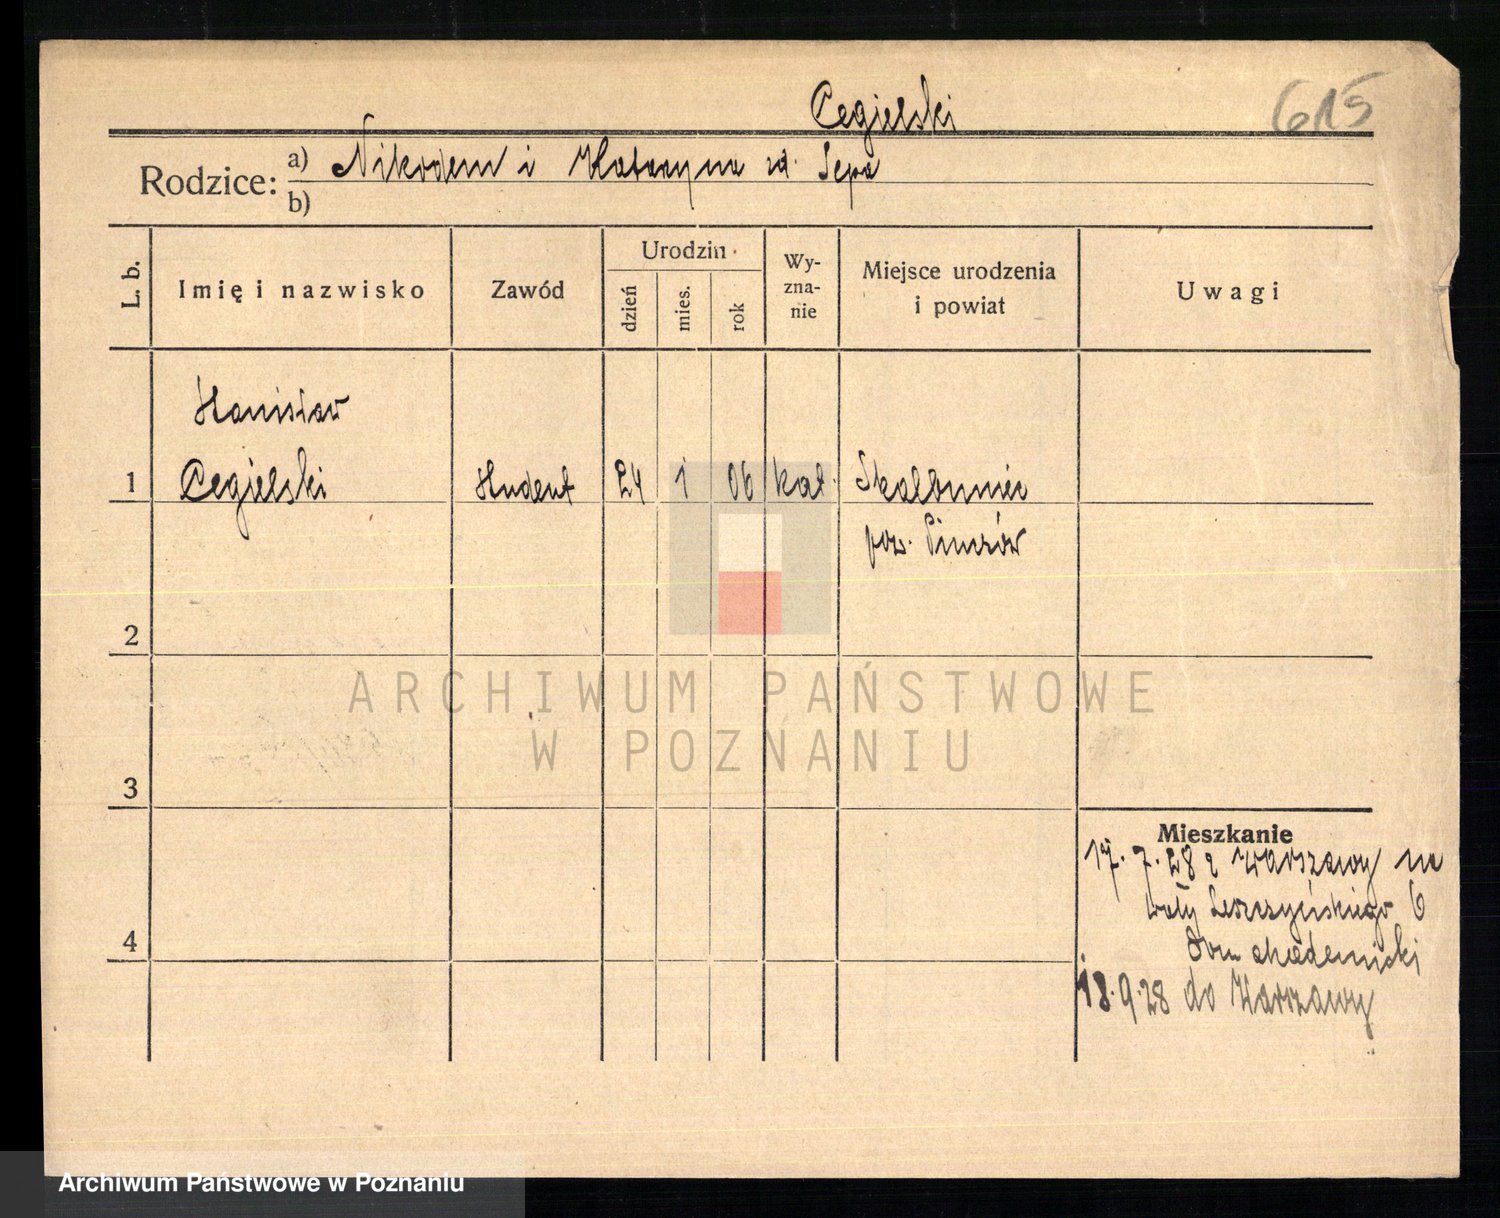 Cegielski
615
Rodzice: a) Nikodem i Katarzyna zd. Sepa
b)
L. b.
Imię i nazwisko
Zawód
Urodzin
dzień
mies.
rok
Wy-
zna-
nie
Miejsce urodzenia
i powiat
Uwagi
Stanisław
1 Cegielski student 24 1 06 kat. Skalbmierz
pow. Pinczów
2
ARCHIWUM PAŃSTWOWE
W POZNANIU
3
Mieszkanie
17. 7. 28 z Warszawy na
Wały Leszczyńskiego 6
4
Dom akademicki
18. 9. 28 do Warszawy
Archiwum Państwowe w Poznaniu